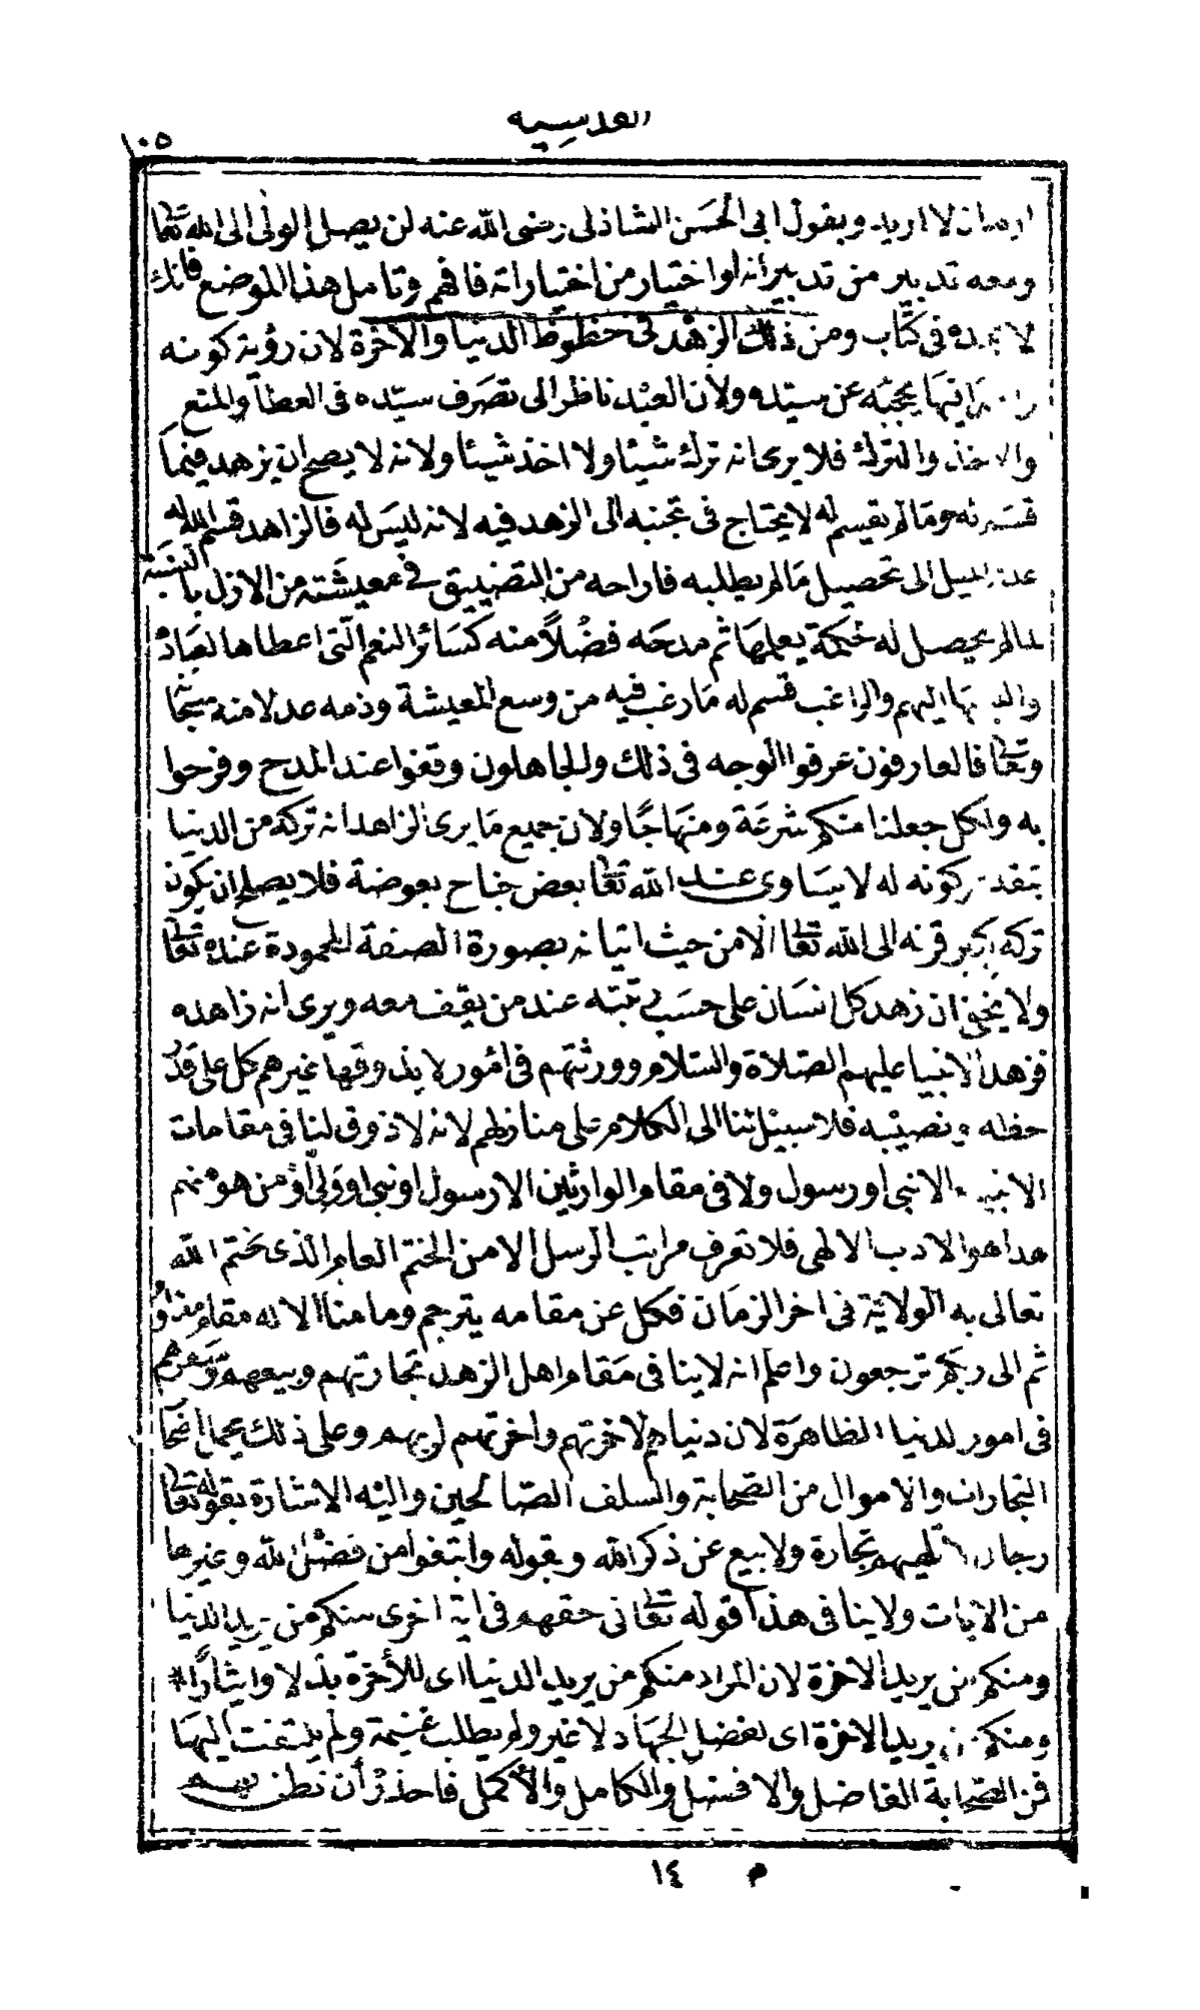 القدسيه
١٠٥
اريد ان لا اريد وبقول ابى الحسن الشاذلى رضى الله عنه لن يصل الولى الى الله تعا
ومعه تدبير من تدبيراته او اختيار من اختياراته فافهم وتامل هذا الموضع فانك
لا تجده فى كتاب ومن ذلك الزهد فى حظوظ الدنيا والآخرة لان رؤية كونه
زاهدا فيها يحجبه عن سيّده ولأن العبد ناظر الى تصرف سيّده فى العطا والمنع
والاخذ والترك فلا يرى انه ترك شيئا ولا اخذ شيئا ولانه لا يصح ان يزهد فيما
قسم له وما لم يقسم له لا يحتاج فى تجنبه الى الزهد فيه لانه ليس له فالزاهد قسم الله له
عدم الميل الى تحصيل مالم يطلبه فاراحه من التضييق فى معيشته من الازل بالنسبة
لمالم يحصل له حكمة يعلمها ثم مدحه فضلًا منه كسائر النعم التى اعطاها لعباده
ونسبها اليهم والراغب قسم له ما رغب فيه من وسع المعيشة وذمه عدلا منه سبحا
وتعا فالعارفون عرفوا الوجه فى ذلك والجاهلون وقفوا عند المدح وفرحوا
به ولكل جعلنا منكم شرعة ومنهاجًا ولان جميع ما يرى الزاهد انه تركه من الدنيا
بتقدير كونه له لا يساوى عند الله تعا بعض جناح بعوضة فلا يصلح ان يكون
تركه كبير قربة الى الله تعا الا من حيث اتيانه بصورة الصفة المحمودة عنده تعا
ولا يخفى ان زهد كل انسان على حسب رتبته عند من يقف معه ويرى انه زاهده
فزهد الانبيا عليهم الصلاة والسلام وورثتهم فى امور لا يذوقها غيرهم كل على قدر
حظه ونصيبه فلا سبيل لنا الى الكلام على منازلهم لانه لا ذوق لنا فى مقامات
الانبياء الا نبى او رسول ولا فى مقام الوارثين الا رسول او نبى او ولى او من هو منهم
هذا هو الادب الالهى فلا تعرف مراتب الرسل الا من الختم العام الذى يختم الله
تعالى به الولاية فى اخر الزمان فكل عن مقامه يترجم وما منا الا له مقام معلوم
ثم الى ربكم ترجعون واعلم انه لاينا فى مقام اهل الزهد تجارتهم وبيعهم وسعيهم
فى امور لدنيا الظاهرة لان دنياهم لاخرتهم واخرتهم لربهم وعلى ذلك يحمل اصحا
التجارات والاموال من الصحابة والسلف الصالحين واليه الاشارة بقوله تعا
رجال لا تلهيهم تجارة ولا بيع عن ذكر الله وبقوله وابتغوا من فضل الله وغيرها
من الايات ولاينا فى هذا قوله تعا فى حقهم فى اية اخرى منكم من يريد الدنيا
ومنكم من يريد الاخرة لان المراد منكم من يريد الدنيا اى للأخرة بذلا وايثارًا
ومنكم من يريد الاخرة اى لفضل الجهاد لا غير ولم يطلب غنيمة ولم يلتفت اليها
فمن الصحابة الفاضل والافضل والكامل والأكمل فاحذر أن تظن بهم
م ١٤